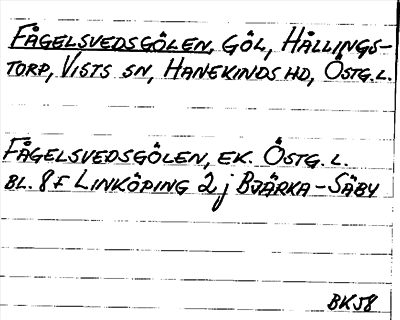 FÅGELSVEDSGÖLEN, GÖL, HÅLLINGS-
TORP, VISTS SN, HANEKINDS HD, ÖSTG.L.
FÅGELSVEDSGÖLEN, EK. ÖSTG. L.
BL. 8F LINKÖPING 2j BJÄRKA-SÄBY
BK58